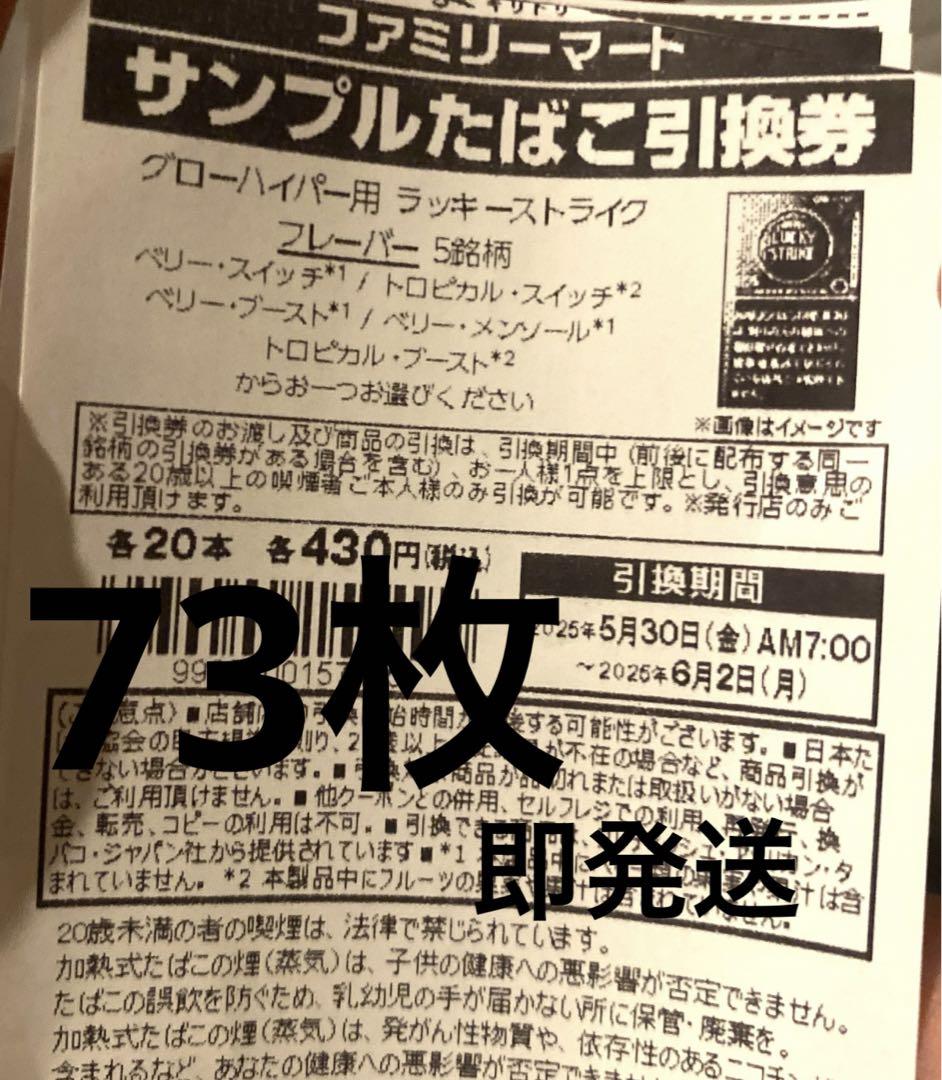 キリトリ
ファミリーマート
サンプルたばこ引換券
グローハイパー用 ラッキーストライク
フレーバー 5銘柄
ベリー・スイッチ*1 / トロピカル・スイッチ*2
ベリー・ブースト*1 / ベリー・メンソール*1
トロピカル・ブースト*2
からお一つお選びください
LUCKY
STRIKE
※画像はイメージです
※引換券のお渡し及び商品の引換は、引換期間中(前後に配布する同一
銘柄の引換券がある場合を含む)、お一人様1点を上限とし、引換意思の
ある20歳以上の喫煙者ご本人様のみ引換が可能です。※発行店のみご
利用頂けます。
各20本 各430円(税込)
引換期間
2025年5月30日(金)AM7:00
~2025年6月2日(月)
73枚
■店舗
する可能性がございます。■日本た
が不在の場合など、商品引換が
できない場合がございます。■
商品が品切れまたは取扱いがない場合
は、ご利用頂けません。■他クーポンとの併用、セルフレジでの利用、
換
金、転売、コピーの利用は不可。■引換でき
パコ・ジャパン社から提供されています■*1
汁は含
まれていません。*2 本製品中にフルーツの
即発送
20歳未満の者の喫煙は、法律で禁じられています。
加熱式たばこの煙(蒸気)は、子供の健康への悪影響が否定できません。
たばこの誤飲を防ぐため、乳幼児の手が届かない所に保管・廃棄を。
加熱式たばこの煙(蒸気)は、発がん性物質や、依存性のあるニコチン
含まれるなど、あなたの健康への悪影響が否定できませ